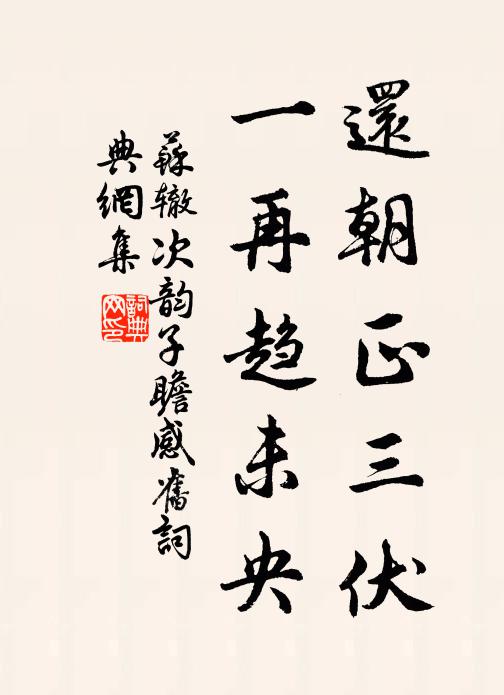 還朝正三伏
一再趍未央
蘇辙次韵子瞻感舊詞
典網集
詞典网印